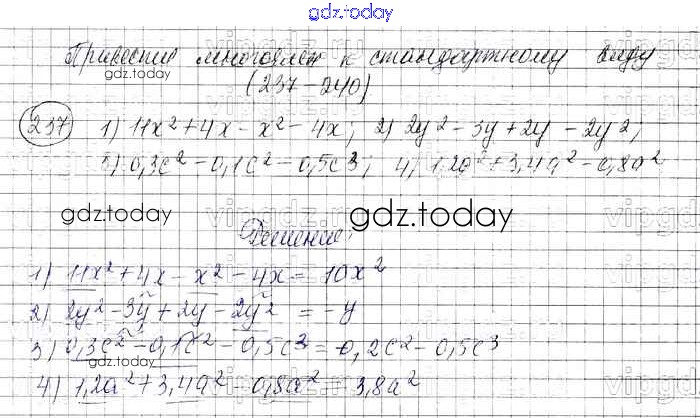 gdz.today
Привести многочлен к стандартному виду
gdz.today
(237-240)
237 1) 11x²+4x-x²-4x; 2) 2y²-3y+2y-2y²;
3) 0,3c²-0,1c²-0,5c³; 4) 1,2a²+3,4a²-0,8a²
gdz.today gdz.today vipgdz
Решение:
1) 11x²+4x-x²-4x=10x²
2) 2y²-3y+2y-2y²=-y
3) 0,3c²-0,1c²-0,5c³=0,2c²-0,5c³
gdz.today
4) 1,2a²+3,4a²-0,8a²=3,8a²